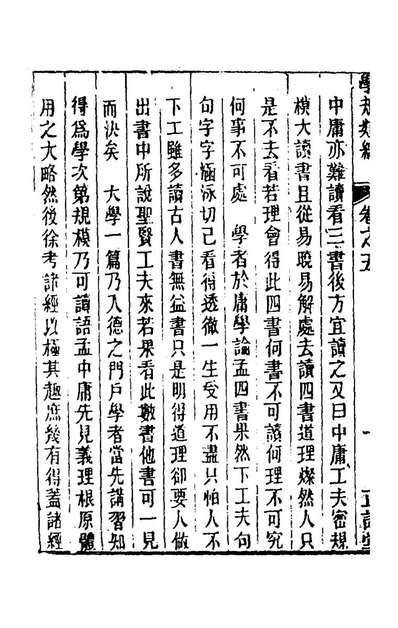 學規類編 卷之五 一 正誼堂
中庸亦難讀看三書後方宜讀之又曰中庸工夫密規
模大讀書且從易曉易解處去讀四書道理燦然人只
是不去看若理會得此四書何書不可讀何理不可究
何事不可處　學者於庸學論孟四書果然下工夫句
句字字涵泳切己看得透徹一生受用不盡只怕人不
下工雖多讀古人書無益書只是明得道理卻要人做
出書中所說聖賢工夫來若果看此數書他書可一見
而決矣　大學一篇乃入德之門戶學者當先講習知
得為學次第規模乃可讀語孟中庸先見義理根原體
用之大略然後徐考諸經以極其趣庶幾有得蓋諸經